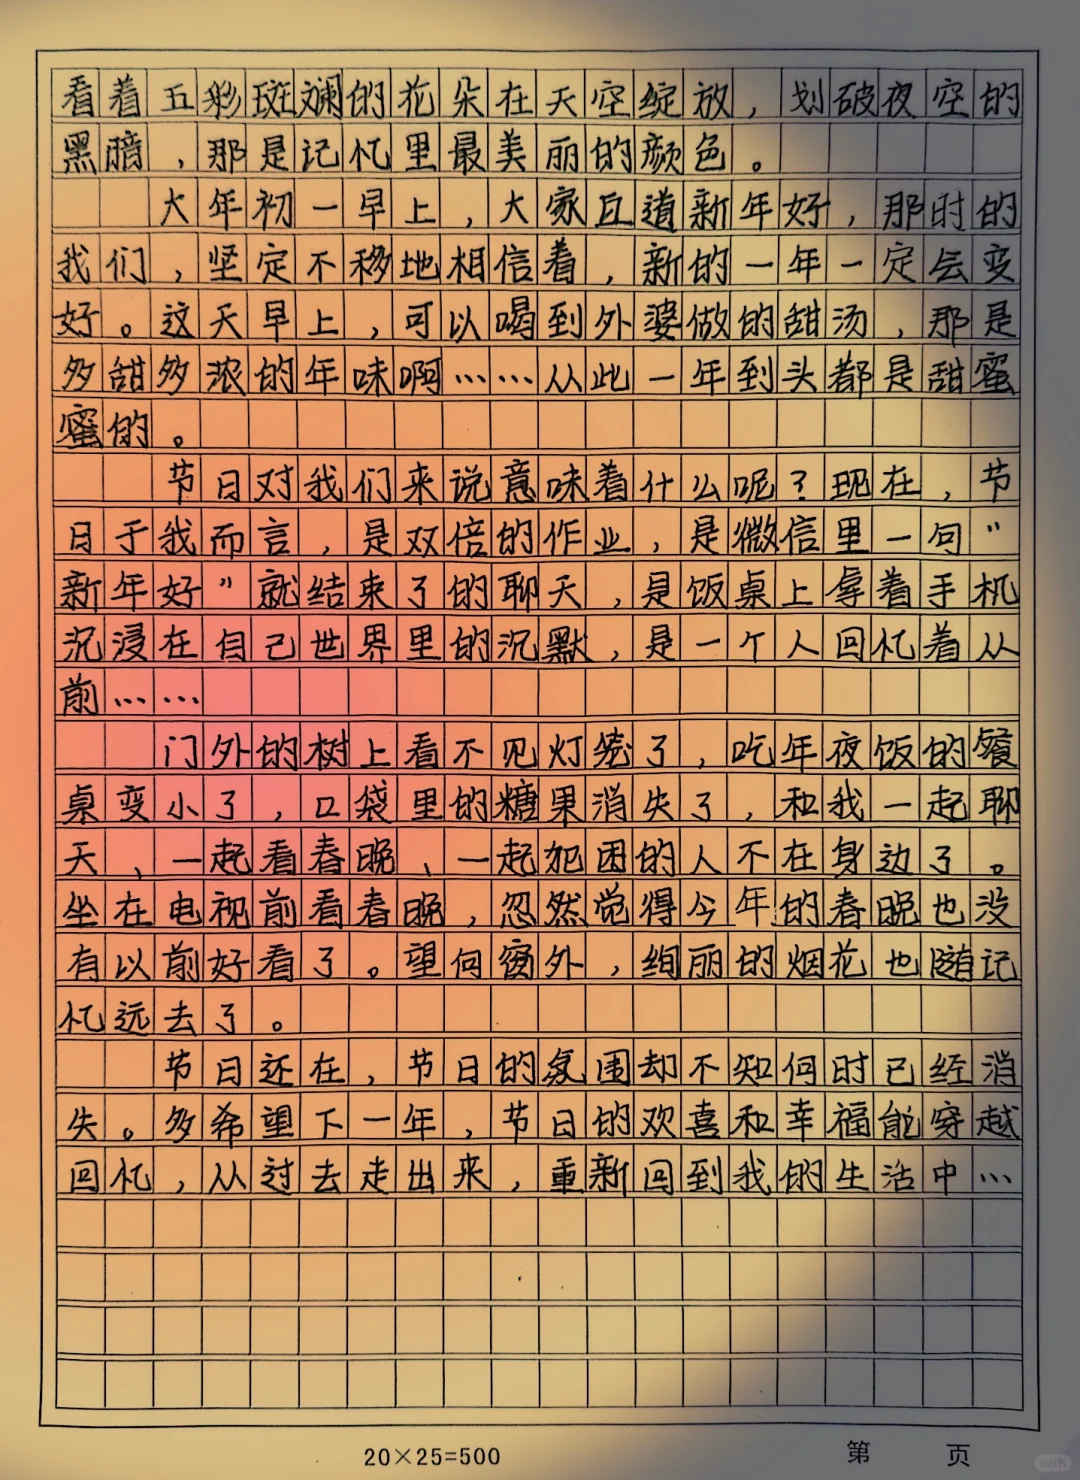 看着五彩斑斓的花朵在天空绽放，划破夜空的
黑暗，那是记忆里最美丽的颜色。
大年初一早上，大家互道新年好，那时的
我们，坚定不移地相信着，新的一年一定会变
好。这天早上，可以喝到外婆做的甜汤，那是
多甜多浓的年味啊……从此一年到头都是甜蜜
蜜的。
节日对我们来说意味着什么呢？现在，节
日于我而言，是双倍的作业，是微信里一句“
新年好”就结束了的聊天，是饭桌上拿着手机
沉浸在自己世界里的沉默，是一个人回忆着从
前……
门外的树上看不见灯笼了，吃年夜饭的餐
桌变小了，口袋里的糖果消失了，和我一起聊
天、一起看春晚、一起犯困的人不在身边了。
坐在电视前看春晚，忽然觉得今年的春晚也没
有以前好看了。望向窗外，绚丽的烟花也随记
忆远去了。
节日还在，节日的氛围却不知何时已经消
失。多希望下一年，节日的欢喜和幸福能穿越
回忆，从过去走出来，重新回到我的生活中…
20×25=500
第 页
小红书